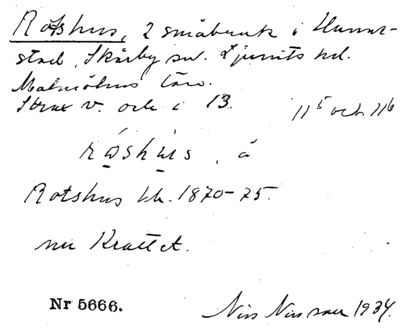 Rotshus, 2 småbruk i Hunne-
stad, Skårby sn. Ljunits hd.
Malmöhus län.
Strax v. och i 13. 11⁵ och 11⁶
råshùs, å
Rotshus bl. 1870-75.
nu Krattet.
Nr 5666. Nils Nilsson 1934.